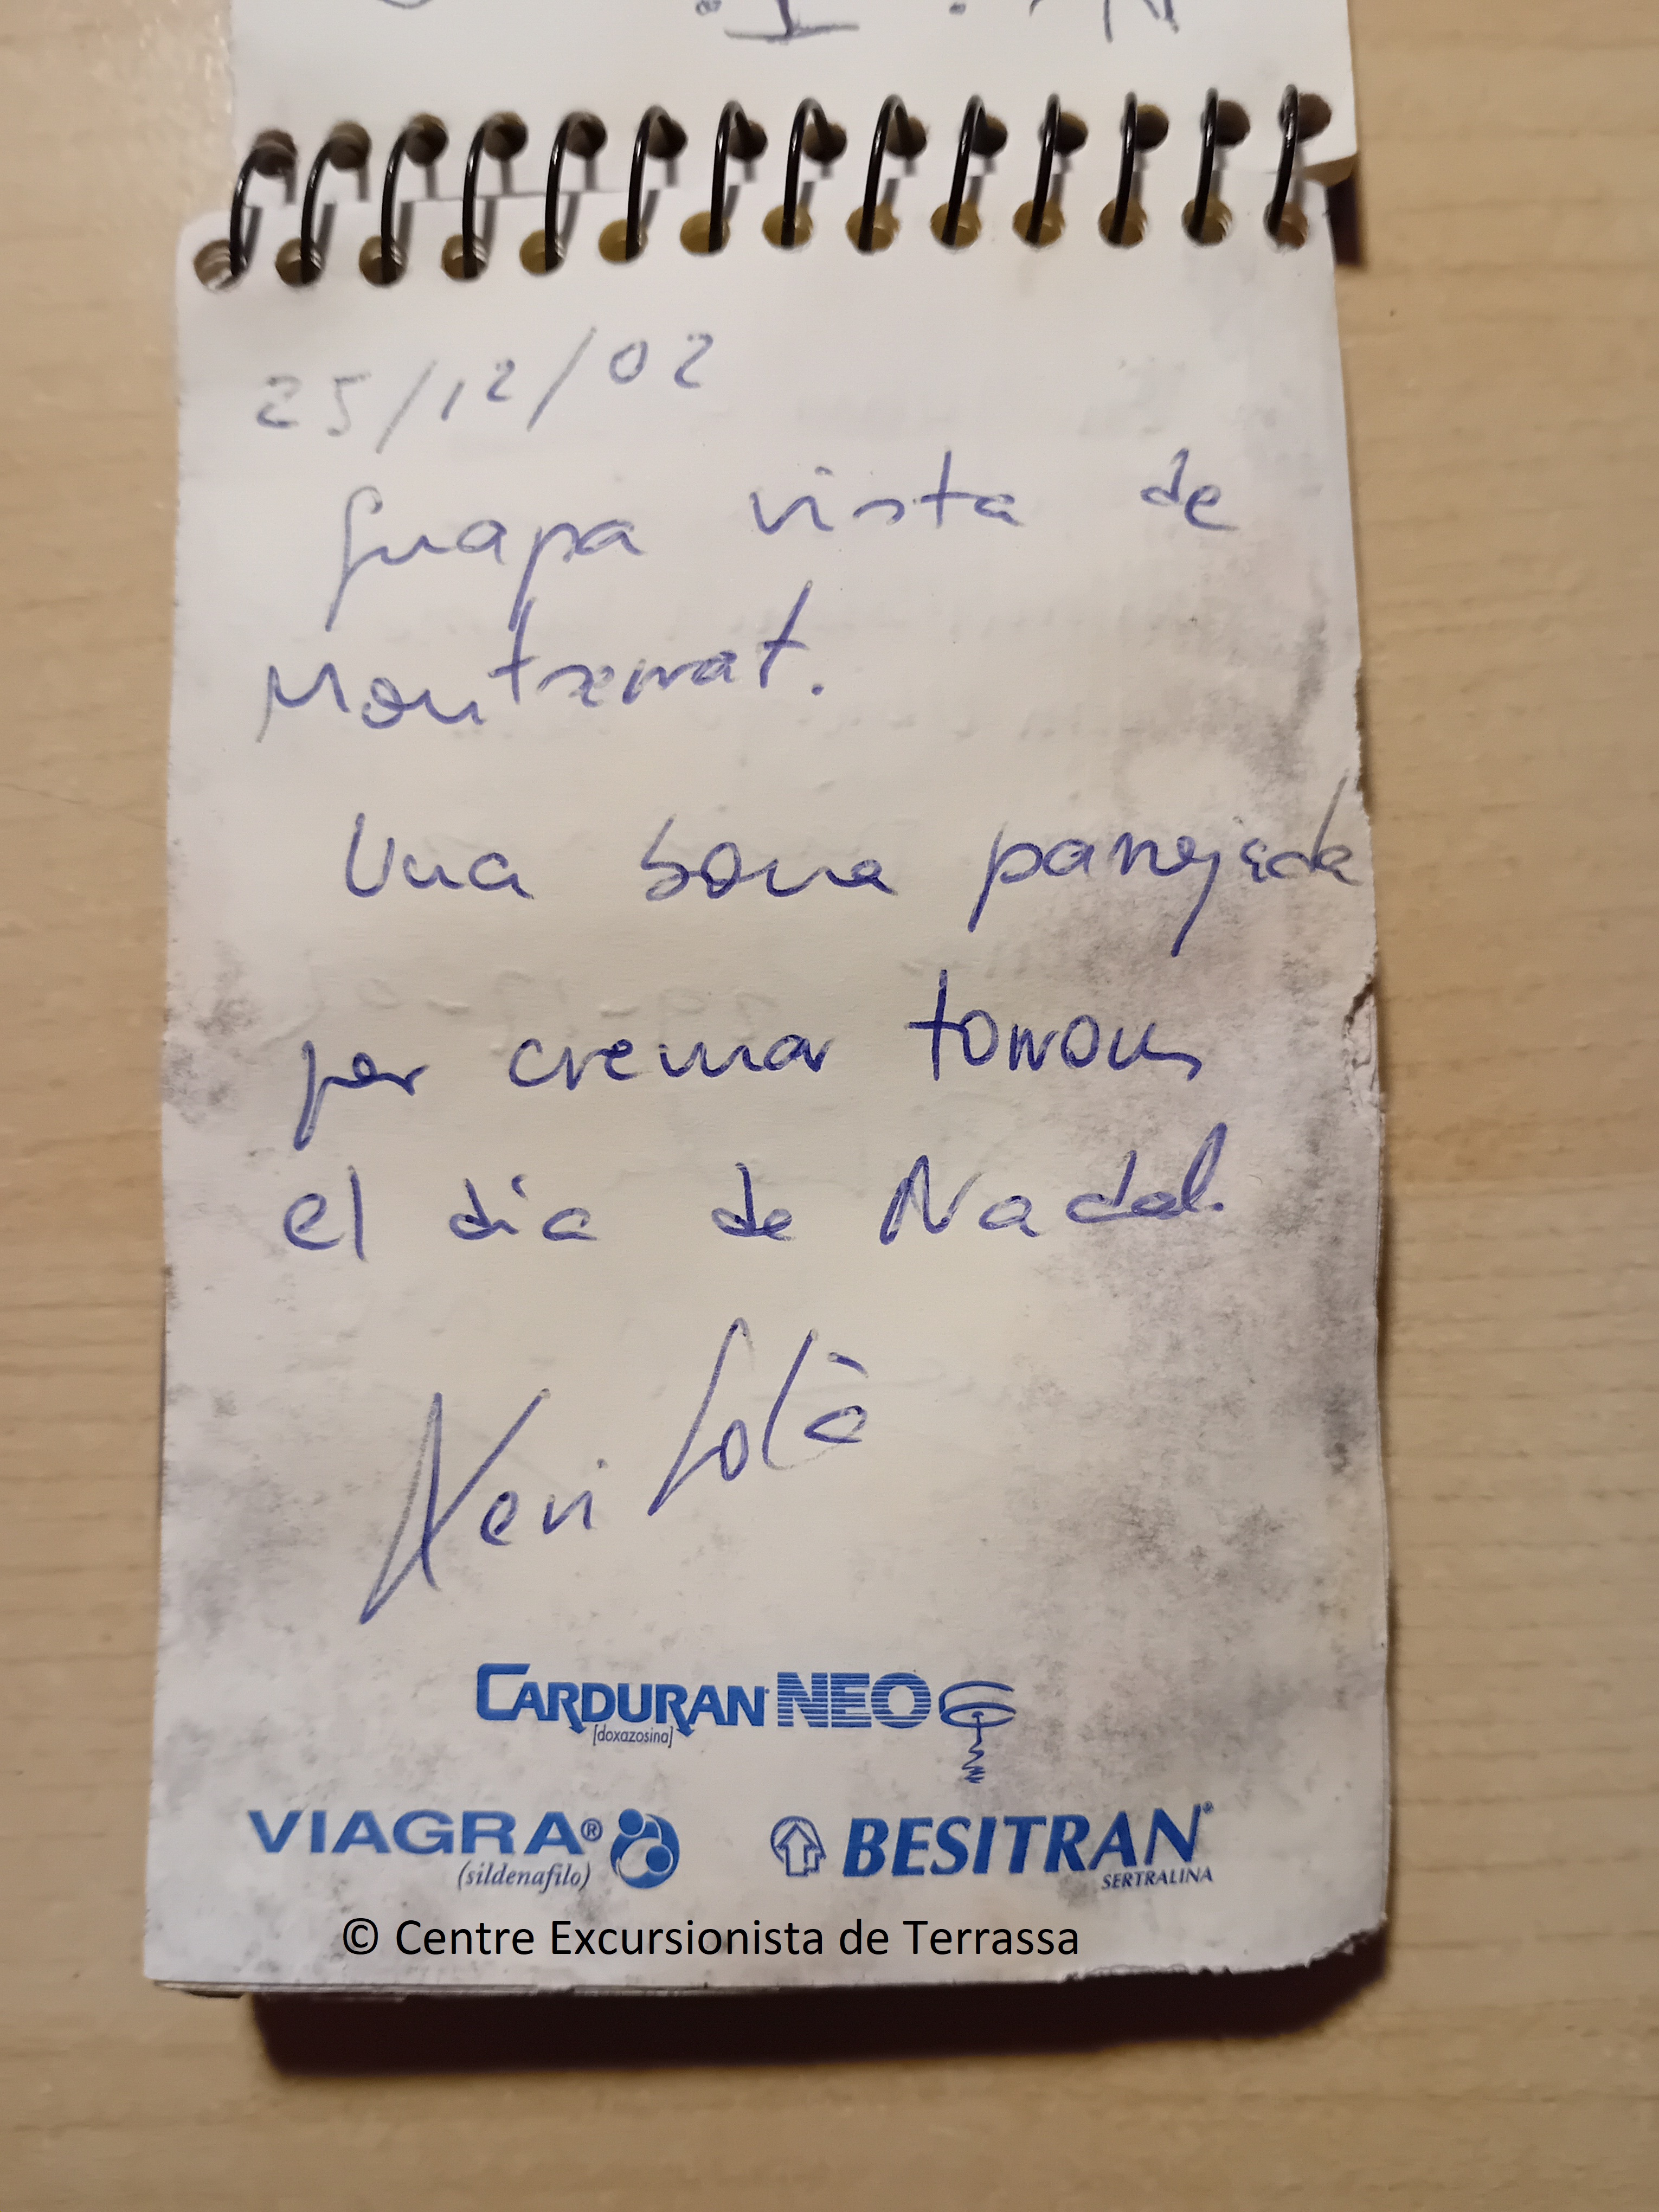 25/12/02
Guapa vista de
Montserrat.
Una bona panejada
per cremar torrons
el dia de Nadal.
Xevi Solà
CARDURAN NEO
[doxazosina]
VIAGRA®
(sildenafilo)
BESITRAN®
SERTRALINA
© Centre Excursionista de Terrassa